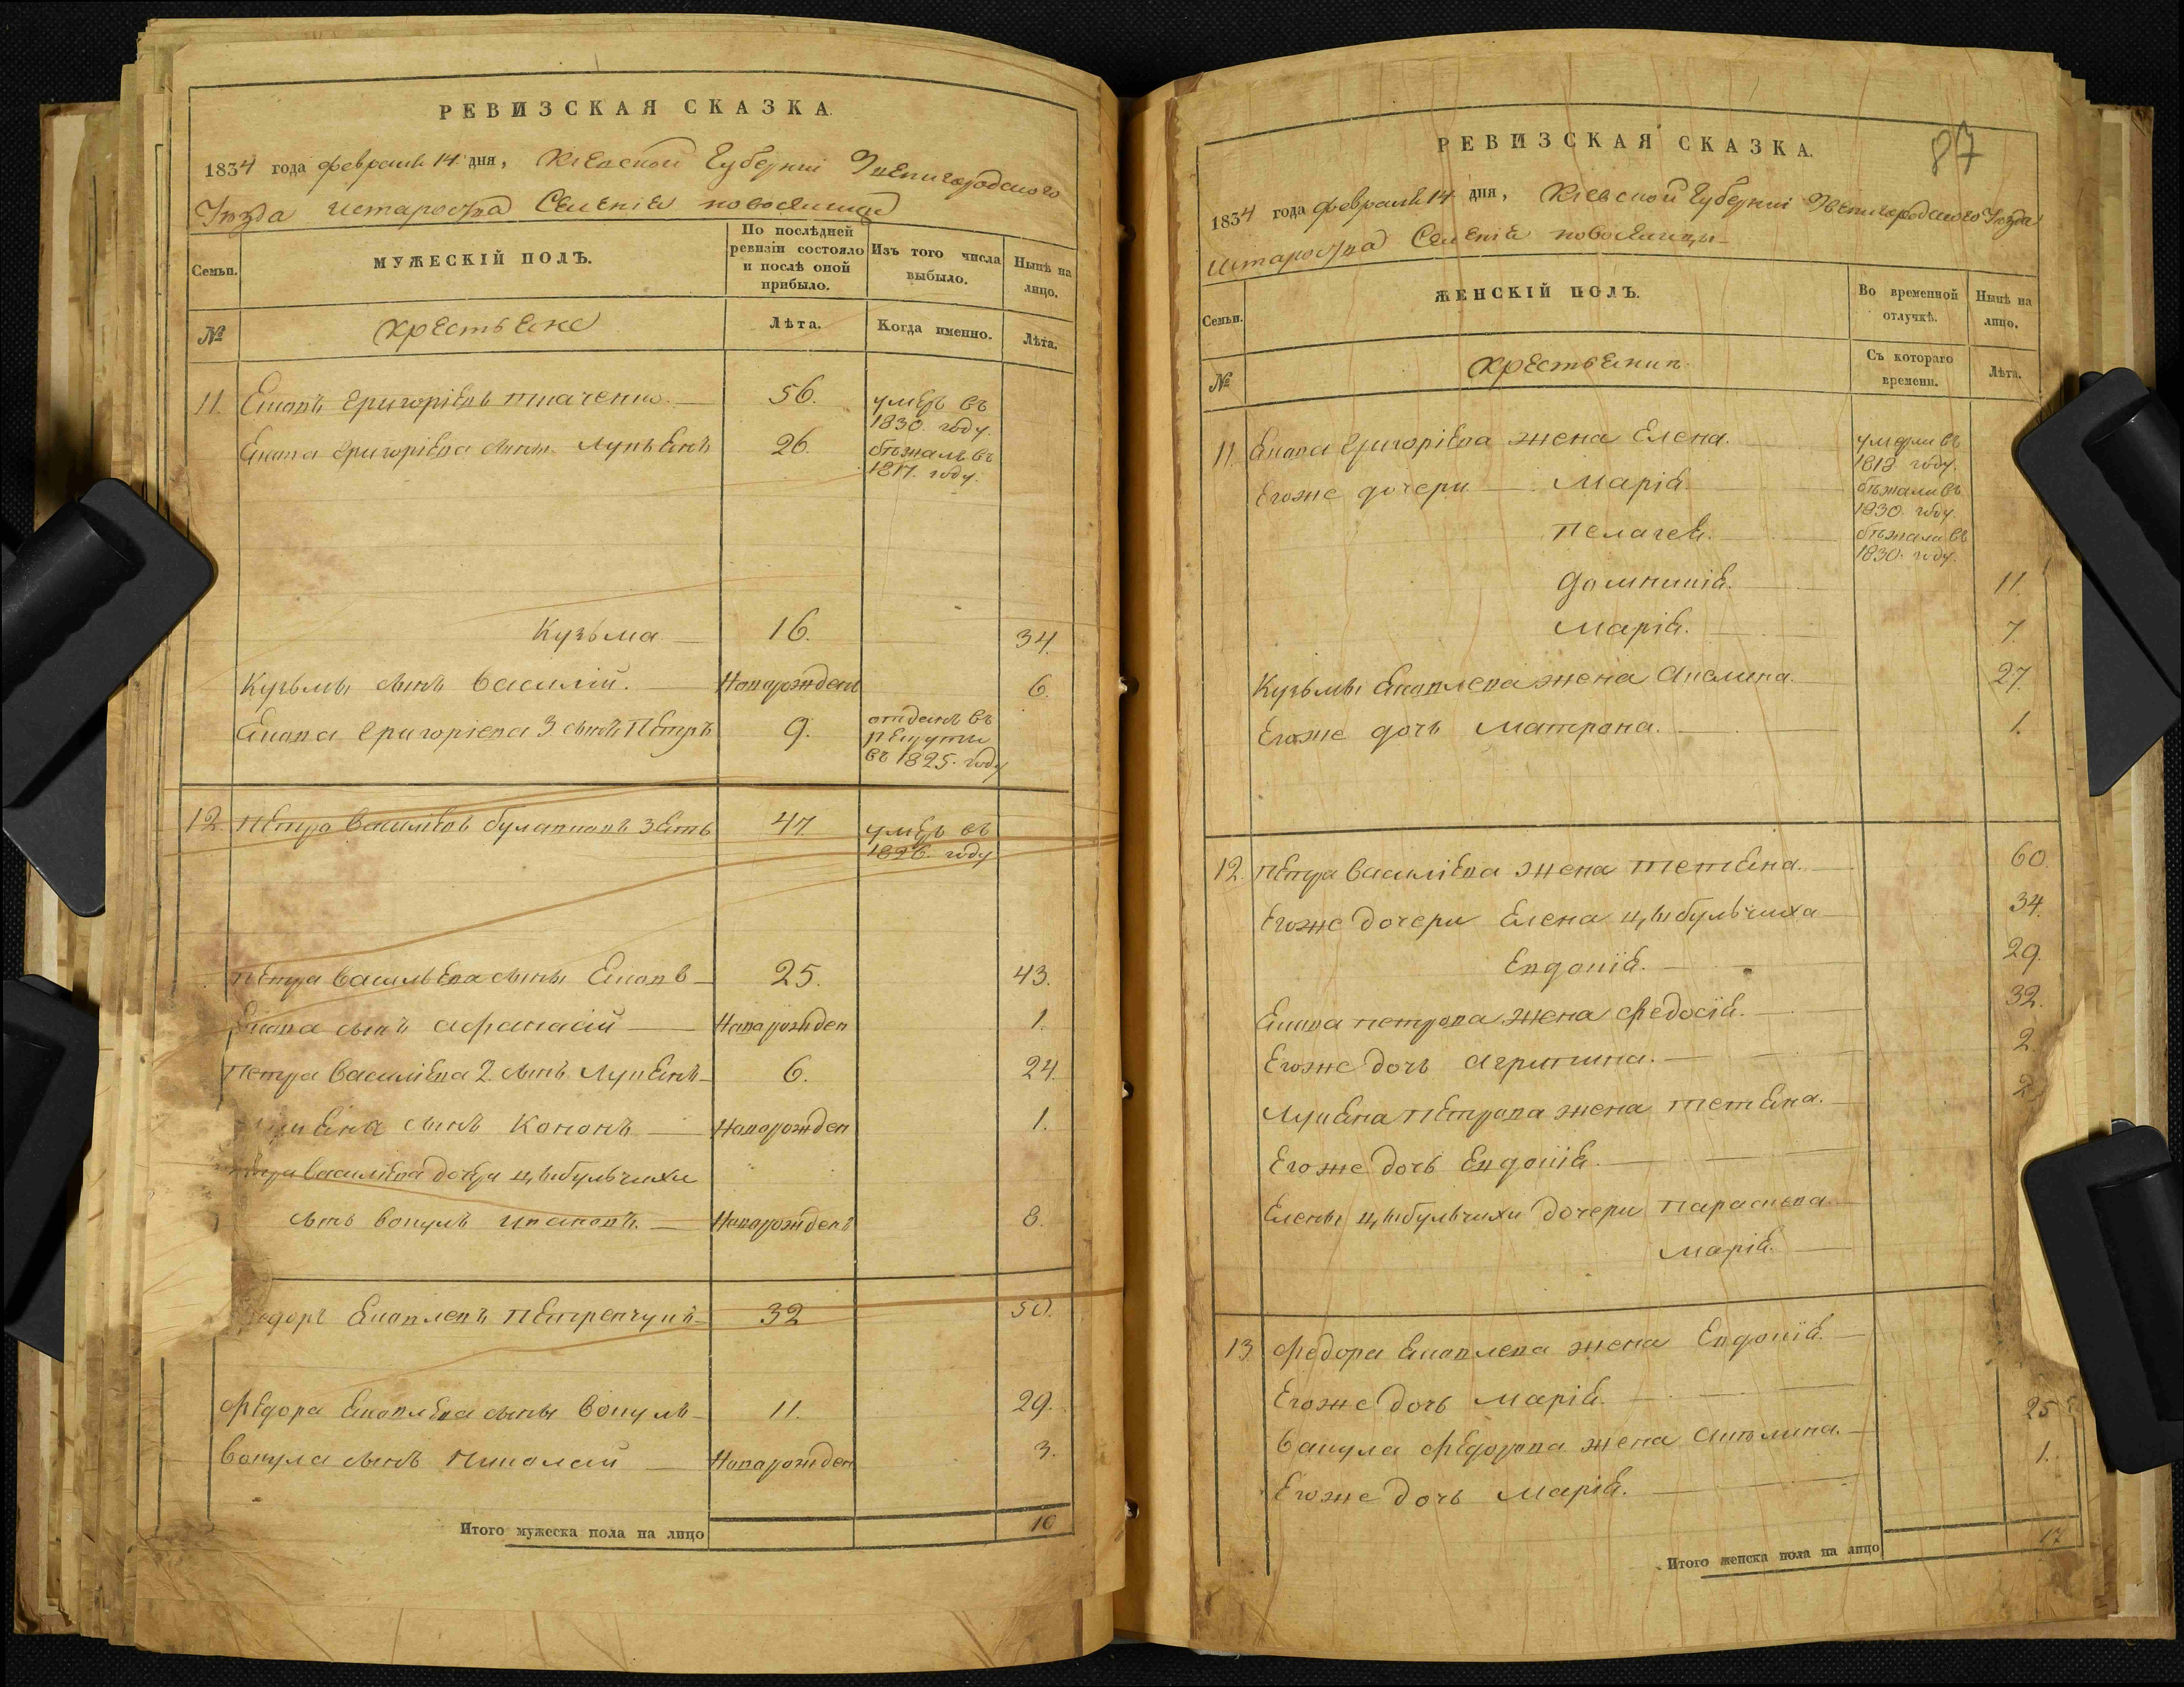 РЕВИЗСКАЯ СКАЗКА.
1834 года февраля 14 дня, Кіевской Губерніи Звенигородскаго
Уезда Староства Селенія новоселици
Семьи. МУЖЕСКІЙ ПОЛЪ. По послѣдней ревизіи состояло и послѣ оной прибыло. Изъ того числа выбыло. Нынѣ на лицо.
№ крестьяне Лѣта. Когда именно. Лѣта.
11. Яковъ Григоріевъ ткаченко 56. умеръ въ 1830. году.
Якова Григоріева сыны Лукьянъ 26. бѣжалъ въ 1817. году.
Кузьма 16. 34.
Кузьмы сынъ Василій. Новорожденъ 6.
Якова Григоріева 3 сынъ Петръ 9. отданъ въ рекруты въ 1825. году
12. Петра Василіевъ зять 47. умеръ въ 1826. году
Петра Васильева сыны Яковъ 25. 43.
Якова сынъ Афанасій Новорожден 1.
Петра Василіева 2. сынъ Лукьянъ 6. 24.
сынъ Кононъ Новорожден 1.
Василіева дочери цыбульчихи
сынъ Вакулъ Ивановъ Новорожденъ 8.
Яковлевъ Петренчукъ 32 50.
Федора Яковлева сыны Вокулъ 11. 29.
Вокула сынъ Николай Новорожден 3.
Итого мужеска пола на лицо 10
87
РЕВИЗСКАЯ СКАЗКА.
1834 года февраля 14 дня, Кіевской Губерніи Звенигородскаго Уезда
Староства Селенія новоселицы
Семьи. ЖЕНСКІЙ ПОЛЪ. Во временной отлучкѣ. Нынѣ на лицо.
№ крестьянки. Съ котораго времени. Лѣта.
11. Якова Григоріева жена Елена. умерли въ году.
Егоже дочери Марія бѣжали въ 1830. году.
Пелагея. бѣжала въ 1830. году.
Домникія. 11.
Марія. 7.
Кузьмы Яковлева жена Акелина. 27.
Егоже дочь Матрона. 1.
12. Петра Василіева жена Тетяна. 60
Егоже дочери Елена цыбульчиха 34.
Евдокія. 29.
Якова Петрова жена Федосія. 32.
Егоже дочь Агрипина. 2.
Лукяна Петрова жена Тетяна. 2
Егоже дочь Евдокія.
Елены цыбульчихи дочери Параскева
Марія.
13 Федора Яковлева жена Евдокія.
Егоже дочь Марія.
Вакула Федорова жена Акилина. 25
Егоже дочь Марія. 1.
Итого женска пола на лицо 17